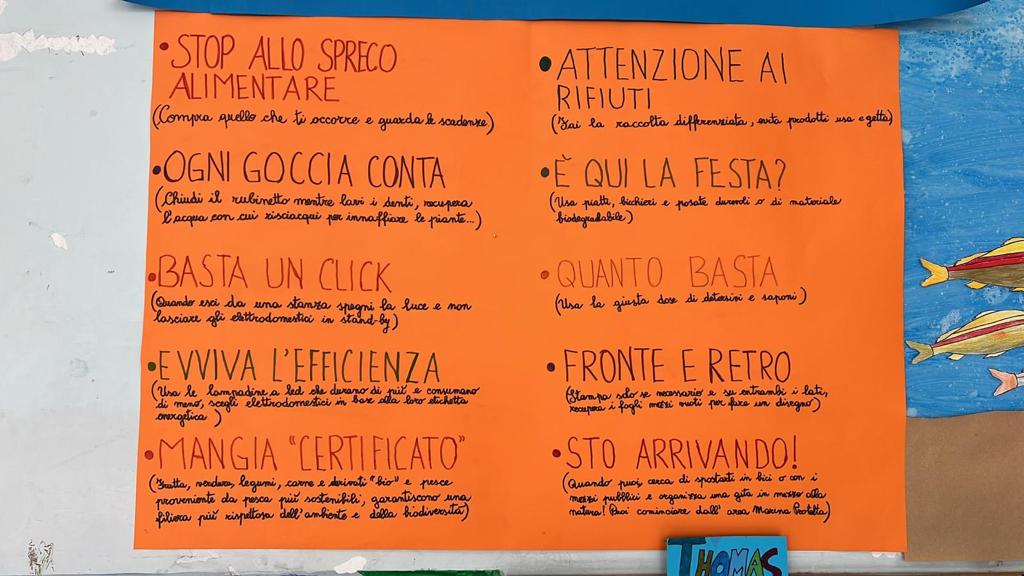 • STOP ALLO SPRECO
ALIMENTARE
(Compra quello che ti occorre e guarda le scadenze)
• OGNI GOCCIA CONTA
(Chiudi il rubinetto mentre lavi i denti, recupera
l'acqua con cui risciacqui per innaffiare le piante...)
• BASTA UN CLICK
(Quando esci da una stanza spegni la luce e non
lasciare gli elettrodomestici in stand-by)
• EVVIVA L'EFFICIENZA
(Usa le lampadine a led che durano di più e consumano
di meno, scegli elettrodomestici in base alla loro etichetta
energetica)
• MANGIA "CERTIFICATO"
(Frutta, verdura, legumi, carne e derivati "bio" e pesce
proveniente da pesca più sostenibili, garantiscono una
filiera più rispettosa dell'ambiente e della biodiversità)
• ATTENZIONE AI
RIFIUTI
(Fai la raccolta differenziata, evita prodotti usa e getta)
• È QUI LA FESTA?
(Usa piatti, bicchieri e posate durevoli o di materiale
biodegradabile)
• QUANTO BASTA
(Usa la giusta dose di detersivi e saponi)
• FRONTE E RETRO
(Stampa solo se necessario e su entrambi i lati,
recupera i fogli mezzi vuoti per fare un disegno)
• STO ARRIVANDO!
(Quando puoi cerca di spostarti in bici o con i
mezzi pubblici e organizza una gita in mezzo alla
natura! Puoi cominciare dall'area Marina Protetta)
THOMAS